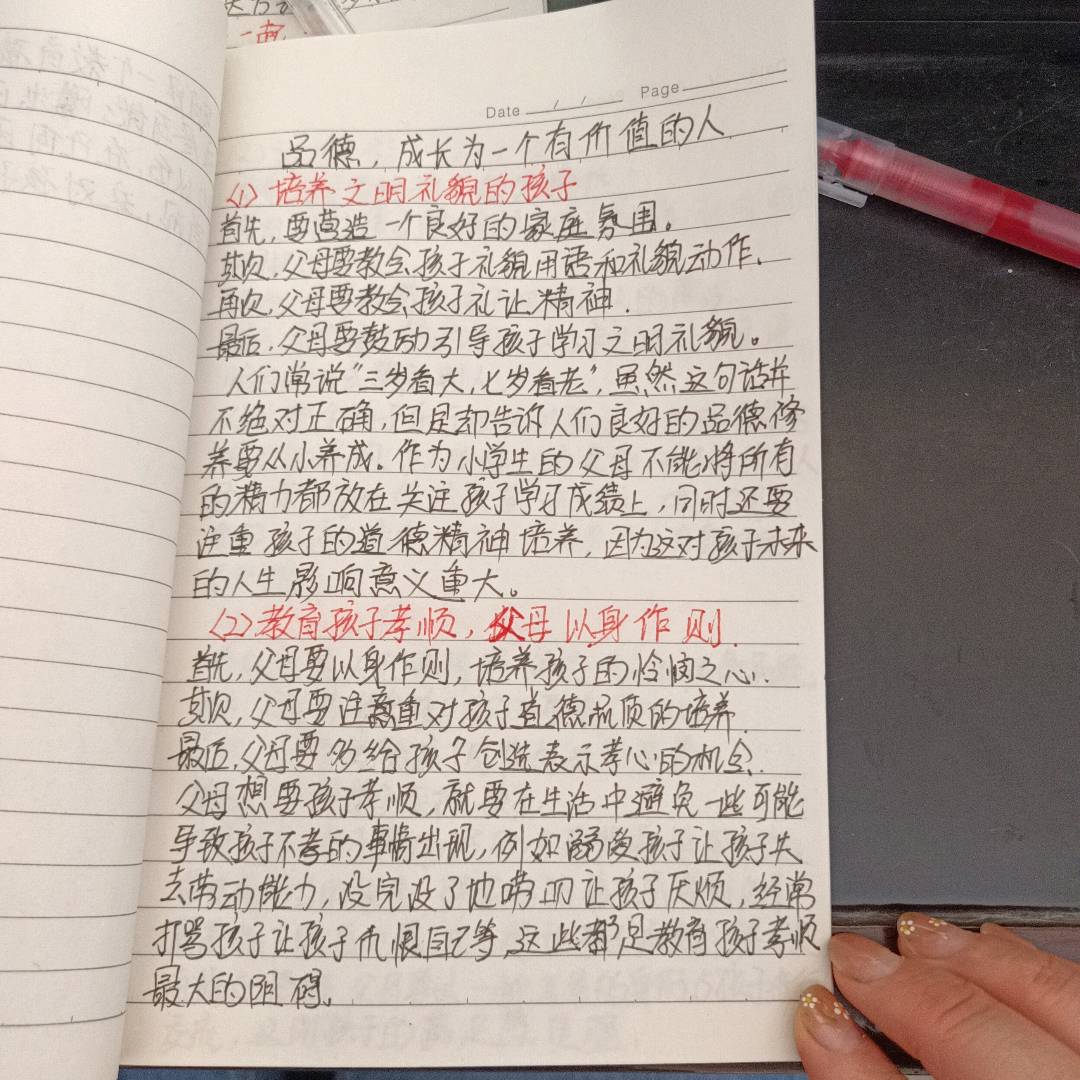 Date / / Page
品德，成长为一个有价值的人
(1) 培养文明礼貌的孩子
首先，要营造一个良好的家庭氛围。
其次，父母要教会孩子礼貌用语和礼貌动作.
再次，父母要教会孩子礼让精神.
最后，父母要鼓励引导孩子学习文明礼貌。
人们常说“三岁看大，七岁看老”，虽然这句话并
不绝对正确，但是却告诉人们良好的品德修
养要从小养成。作为小学生的父母不能将所有
的精力都放在关注孩子学习成绩上，同时还要
注重孩子的道德精神培养，因为这对孩子未来
的人生影响意义重大。
(2) 教育孩子孝顺，父母以身作则.
首先，父母要以身作则，培养孩子的怜悯之心.
其次，父母要注意重对孩子道德品质的培养.
最后，父母要多给孩子创造表示孝心的机会.
父母想要孩子孝顺，就要在生活中避免一些可能
导致孩子不孝的事情出现，例如溺爱孩子让孩子失
去劳动能力，没完没了地唠叨让孩子厌烦，经常
打骂孩子让孩子仇恨自己等，这些都是教育孩子孝顺
最大的阻碍。